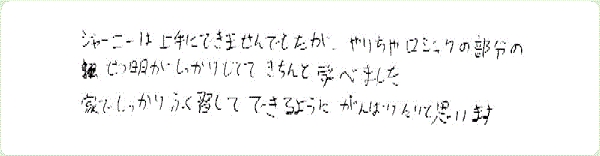 ジャーニーは上手にできませんでしたが、やりちやロミングの部分の
せつ明がしっかりしてて きちんと学べました
家でしっかりふく習して できるように がんばりたいと思います